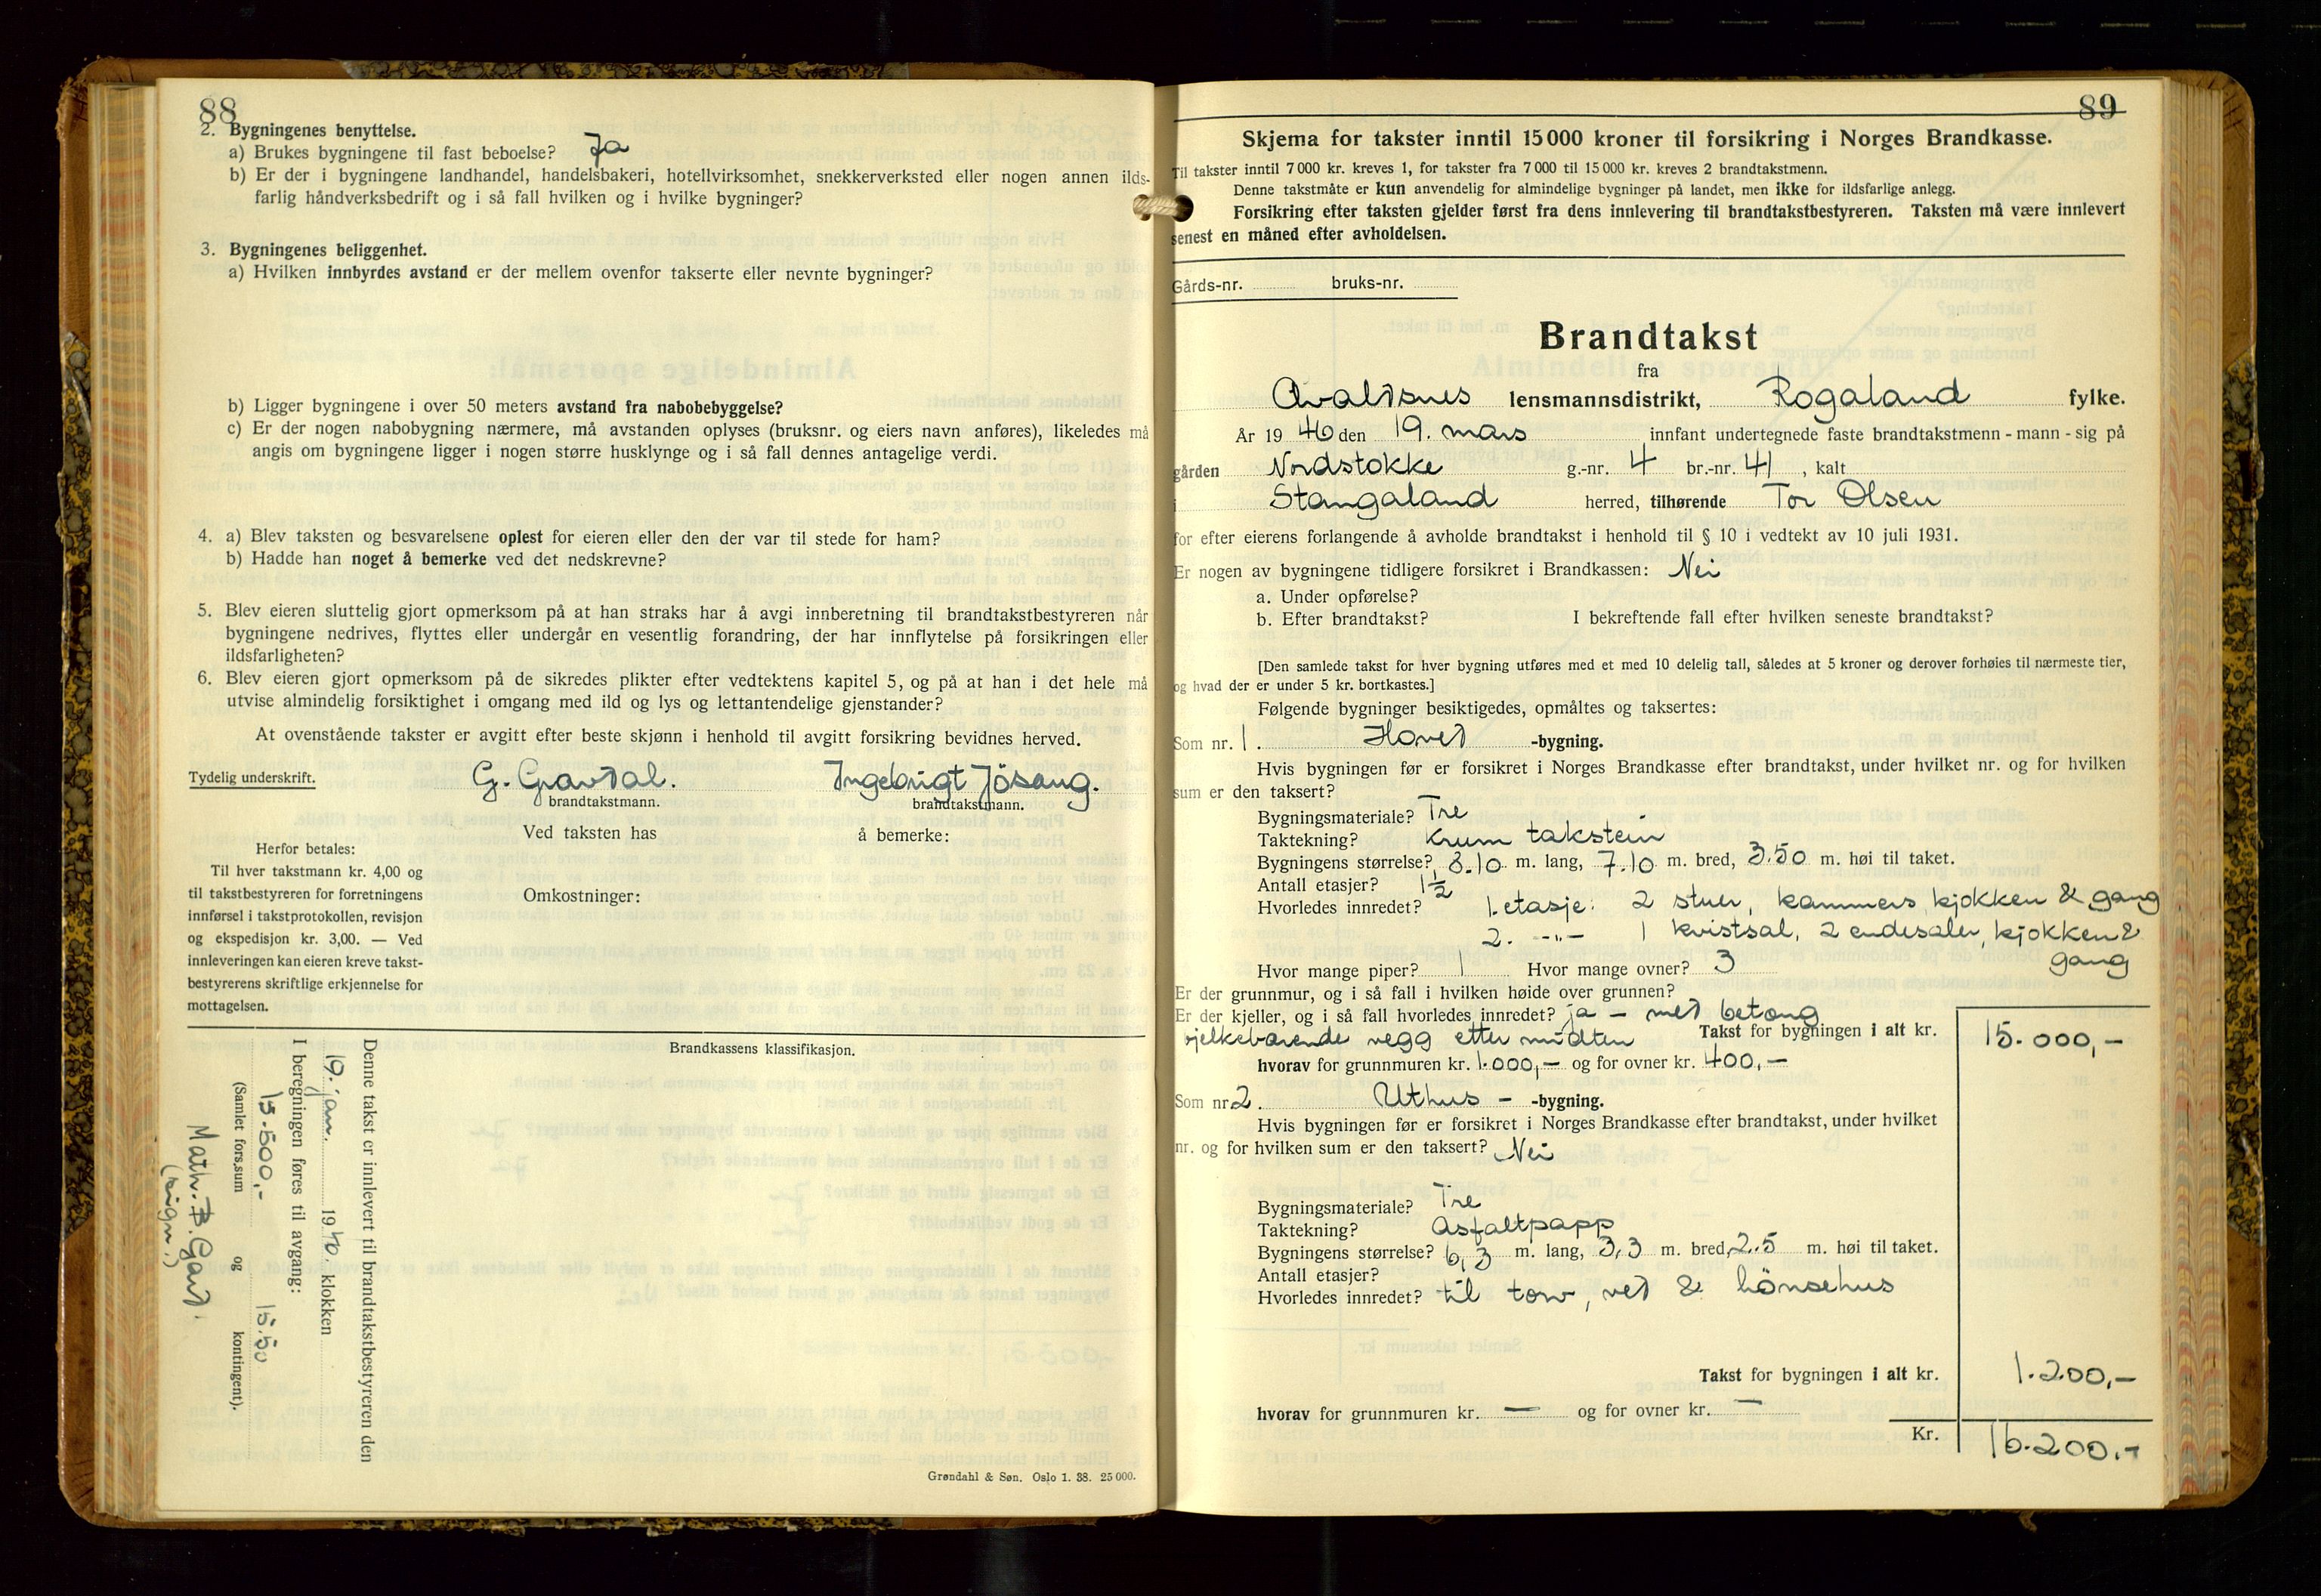 88
2. Bygningenes benyttelse.
a) Brukes bygningene til fast beboelse? Ja
b) Er der i bygningene landhandel, handelsbakeri, hotellvirksomhet, snekkerverksted eller nogen annen ilds-
farlig håndverksbedrift og i så fall hvilken og i hvilke bygninger?
3. Bygningenes beliggenhet.
a) Hvilken innbyrdes avstand er der mellem ovenfor takserte eller nevnte bygninger?
b) Ligger bygningene i over 50 meters avstand fra nabobebyggelse?
c) Er der nogen nabobygning nærmere, må avstanden oplyses (bruksnr. og eiers navn anføres), likeledes må
angis om bygningene ligger i nogen større husklynge og i så fall dennes antagelige verdi.
4. a) Blev taksten og besvarelsene oplest for eieren eller den der var til stede for ham?
b) Hadde han noget å bemerke ved det nedskrevne?
5. Blev eieren sluttelig gjort opmerksom på at han straks har å avgi innberetning til brandtakstbestyreren når
bygningene nedrives, flyttes eller undergår en vesentlig forandring, der har innflytelse på forsikringen eller
ildsfarligheten?
6. Blev eieren gjort opmerksom på de sikredes plikter efter vedtektens kapitel 5, og på at han i det hele må
utvise almindelig forsiktighet i omgang med ild og lys og lettantendelige gjenstander?
At ovenstående takster er avgitt efter beste skjønn i henhold til avgitt forsikring bevidnes herved.
Tydelig underskrift. G. Gravdal. Ingebrigt Jösang.
brandtakstmann. brandtakstmann.
Ved taksten has å bemerke:
Herfor betales:
Til hver takstmann kr. 4,00 og
til takstbestyreren for forretningens
innførsel i takstprotokollen, revisjon
og ekspedisjon kr. 3,00. — Ved
innleveringen kan eieren kreve takst-
bestyrerens skriftlige erkjennelse for
mottagelsen.
Omkostninger:
Brandkassens klassifikasjon.
Denne takst er innlevert til brandtakstbestyreren den
19. jan. 1940, klokken
I beregningen føres til avgang:
15.500,- 15.50
(Samlet fors.sum og kontingent).
Math. B. Gard.
(sign.)
Grøndahl & Søn. Oslo 1. 38. 25 000.
89
Skjema for takster inntil 15 000 kroner til forsikring i Norges Brandkasse.
Til takster inntil 7 000 kr. kreves 1, for takster fra 7 000 til 15 000 kr. kreves 2 brandtakstmenn.
Denne takstmåte er kun anvendelig for almindelige bygninger på landet, men ikke for ildsfarlige anlegg.
Forsikring efter taksten gjelder først fra dens innlevering til brandtakstbestyreren. Taksten må være innlevert
senest en måned efter avholdelsen.
Gårds-nr. bruks-nr.
Brandtakst
fra
Avaldsnes lensmannsdistrikt, Rogaland fylke.
År 1946 den 19. mars innfant undertegnede faste brandtakstmenn - mann - sig på
gården Nordstokke g.-nr. 4 br.-nr. 41, kalt
i Stangaland herred, tilhørende Tor Olsen
for efter eierens forlangende å avholde brandtakst i henhold til § 10 i vedtekt av 10 juli 1931.
Er nogen av bygningene tidligere forsikret i Brandkassen: Nei
a. Under opførelse?
b. Efter brandtakst? I bekreftende fall efter hvilken seneste brandtakst?
[Den samlede takst for hver bygning utføres med et med 10 delelig tall, således at 5 kroner og derover forhøies til nærmeste tier,
og hvad der er under 5 kr. bortkastes.]
Følgende bygninger besiktigedes, opmåltes og taksertes:
Som nr. 1. Hoved -bygning.
Hvis bygningen før er forsikret i Norges Brandkasse efter brandtakst, under hvilket nr. og for hvilken
sum er den taksert?
Bygningsmateriale? Tre
Taktekning? Krum takstein
Bygningens størrelse? 8.10 m. lang, 7.10 m. bred, 3.50 m. høi til taket.
Antall etasjer? 1½
Hvorledes innredet? 1. etasje: 2 stuer, kammers, kjøkken & gang
2. -"- 1 kvistsal, 2 endesaler, kjøkken &
gang
Hvor mange piper? 1 Hvor mange ovner? 3
Er der grunnmur, og i så fall i hvilken høide over grunnen?
Er der kjeller, og i så fall hvorledes innredet? ja - med betong
bjelkebærende vegg etter midten Takst for bygningen i alt kr. 15.000,-
hvorav for grunnmuren kr. 1.000,- og for ovner kr. 400,-
Som nr 2. Uthus - -bygning.
Hvis bygningen før er forsikret i Norges Brandkasse efter brandtakst, under hvilket
nr. og for hvilken sum er den taksert? Nei
Bygningsmateriale? Tre
Taktekning? Asfaltpapp
Bygningens størrelse? 6,3 m. lang, 3,3 m. bred, 2.5 m. høi til taket.
Antall etasjer?
Hvorledes innredet? til torv, ved & hönsehus
Takst for bygningen i alt kr. 1.200,-
hvorav for grunnmuren kr. — og for ovner kr. —
Kr. 16.200,-